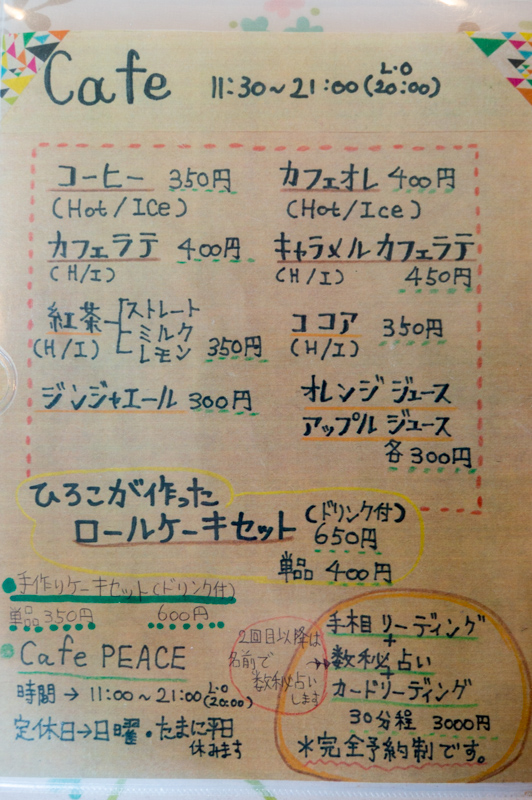 Cafe 11:30~21:00(L.O 20:00)
コーヒー 350円
(Hot/Ice)
カフェオレ 400円
(Hot/Ice)
カフェラテ 400円
(H/I)
キャラメルカフェラテ
(H/I) 450円
紅茶 ストレート
ミルク
(H/I) レモン 350円
ココア 350円
(H/I)
ジンジャエール 300円
オレンジジュース
アップルジュース
各300円
ひろこが作った
ロールケーキセット (ドリンク付)
650円
単品 400円
●手作りケーキセット(ドリンク付)
単品 350円 600円
Cafe PEACE
時間→11:00~21:00(L.O 20:00)
定休日→日曜・たまに平日
休みます
2回目以降は
名前で
数秘占い
します
手相リーディング
+
数秘占い
+
カードリーディング
30分程 3000円
*完全予約制です。